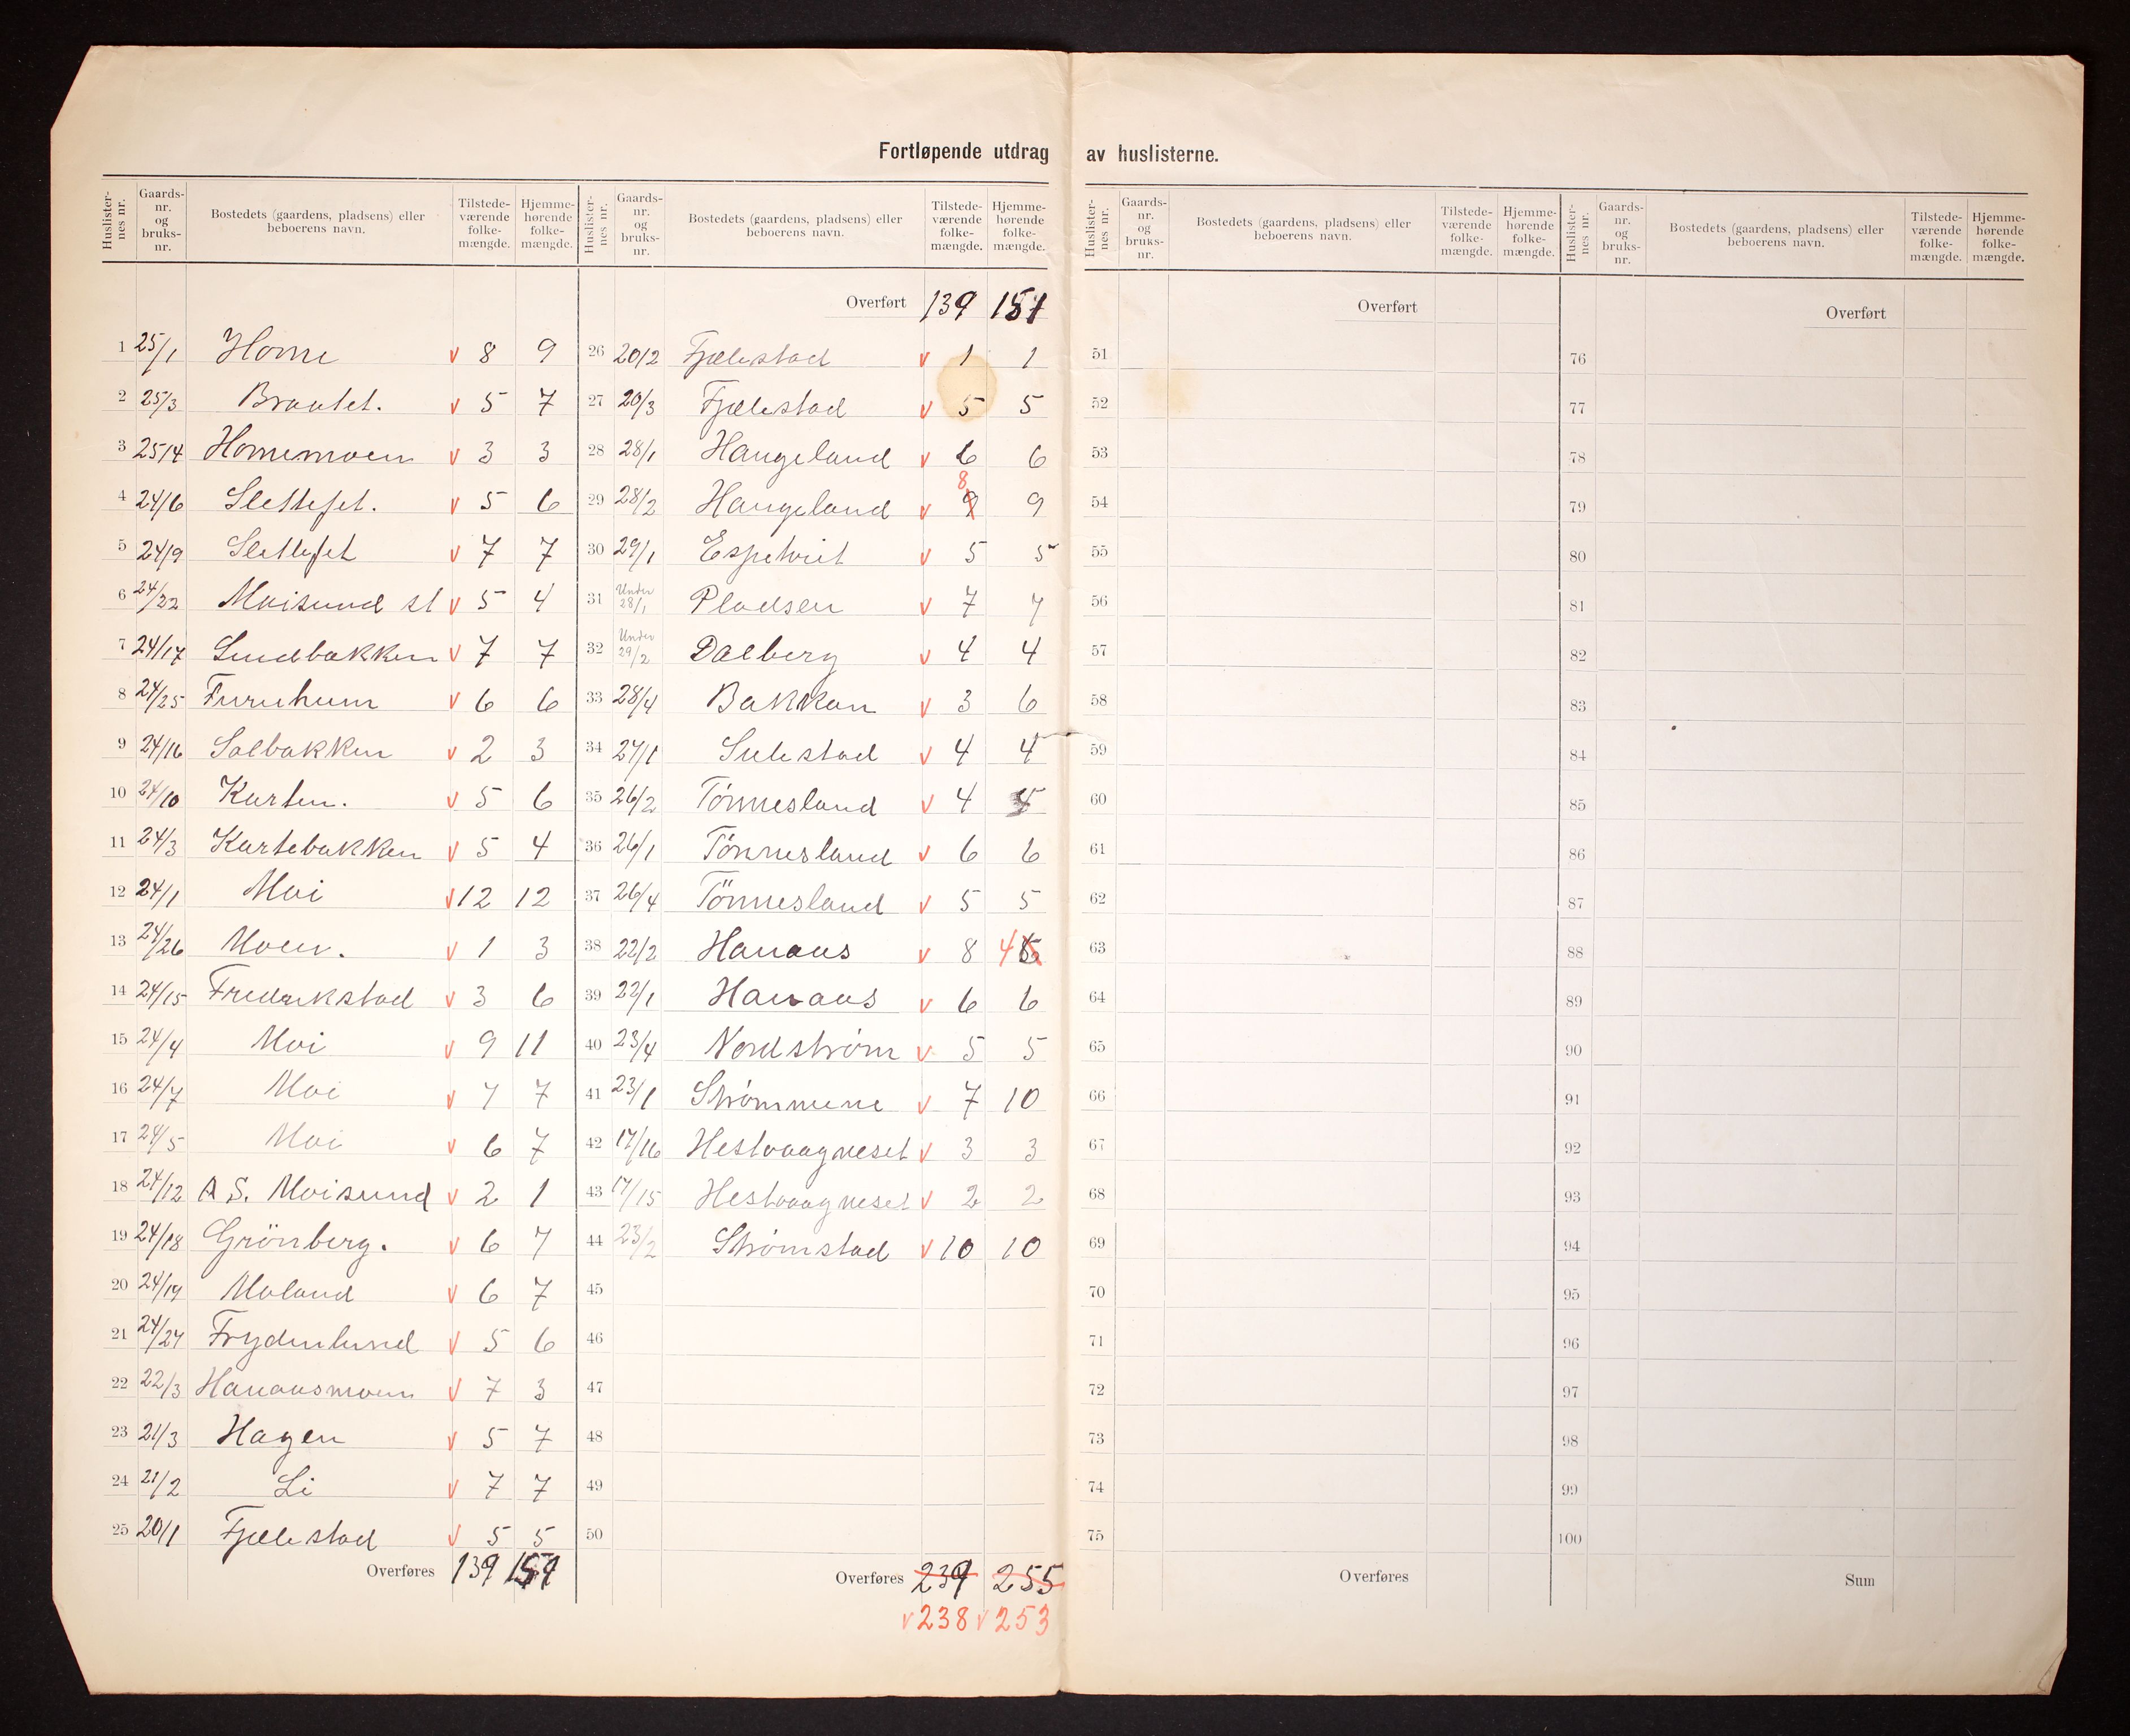 Fortløpende utdrag av huslisterne.
Huslister-nes nr. Gaards-nr. og bruks-nr. Bostedets (gaardens, pladsens) eller beboerens navn. Tilstede-værende folke-mængde. Hjemme-hørende folke-mængde.
1 25/1 Home v 8 9
2 25/3 Braatet. v 5 7
3 25/4 Homemoen v 3 3
4 24/6 Slettefet. v 5 6
5 24/9 Slettefet v 7 7
6 24/22 Moisund st v 5 4
7 24/17 Sundbakken v 7 7
8 24/25 Furuheim v 6 6
9 24/16 Solbakken v 2 3
10 24/10 Karten. v 5 6
11 24/3 Kartebakken v 5 4
12 24/1 Moi v 12 12
13 24/26 Moen. v 1 3
14 24/15 Fredrikstad v 3 6
15 24/4 Moi v 9 11
16 24/7 Moi v 7 7
17 24/5 Moi v 6 7
18 24/12 A S. Moisund v 2 1
19 24/18 Grönberg. v 6 7
20 24/14 Moland v 6 7
21 24/27 Frydenlund v 5 6
22 22/3 Hanaasmoen v 7 3
23 21/3 Hagen v 5 7
24 21/2 Li v 7 7
25 20/1 Fjælestad v 5 5
Overføres 139 151
Huslister-nes nr. Gaards-nr. og bruks-nr. Bostedets (gaardens, pladsens) eller beboerens navn. Tilstede-værende folke-mængde. Hjemme-hørende folke-mængde.
Overført 139 151
26 20/2 Fjælestad v 1 1
27 20/3 Fjælestad v 5 5
28 28/1 Haugeland v 6 6
29 28/2 Haugeland v 9 8 9
30 29/1 Espetveit v 5 5
31 Under 28/1 Pladsen v 7 7
32 Under 29/2 Dalberg v 4 4
33 28/4 Bakkan v 3 6
34 27/1 Sulestad v 4 4
35 26/2 Tönnesland v 4
36 26/1 Tönnesland v 6 6
37 26/4 Tönnesland v 5 5
38 22/2 Hanaas v 8 4
39 22/1 Hanaas v 6 6
40 23/4 Nordstrøm v 5 5
41 23/1 Strømmene v 7 10
42 17/16 Hestvaagneset v 3 3
43 17/15 Hestvaagneset v 2 2
44 23/2 Strømstad v 10 10
45
46
47
48
49
50
Overføres 239 255
v 238 v 253
Huslister-nes nr. Gaards-nr. og bruks-nr. Bostedets (gaardens, pladsens) eller beboerens navn. Tilstede-værende folke-mængde. Hjemme-hørende folke-mængde.
Overført
51
52
53
54
55
56
57
58
59
60
61
62
63
64
65
66
67
68
69
70
71
72
73
74
75
Overføres
Huslister-nes nr. Gaards-nr. og bruks-nr. Bostedets (gaardens, pladsens) eller beboerens navn. Tilstede-værende folke-mængde. Hjemme-hørende folke-mængde.
Overført
76
77
78
79
80
81
82
83
84
85
86
87
88
89
90
91
92
93
94
95
96
97
98
99
100
Sum